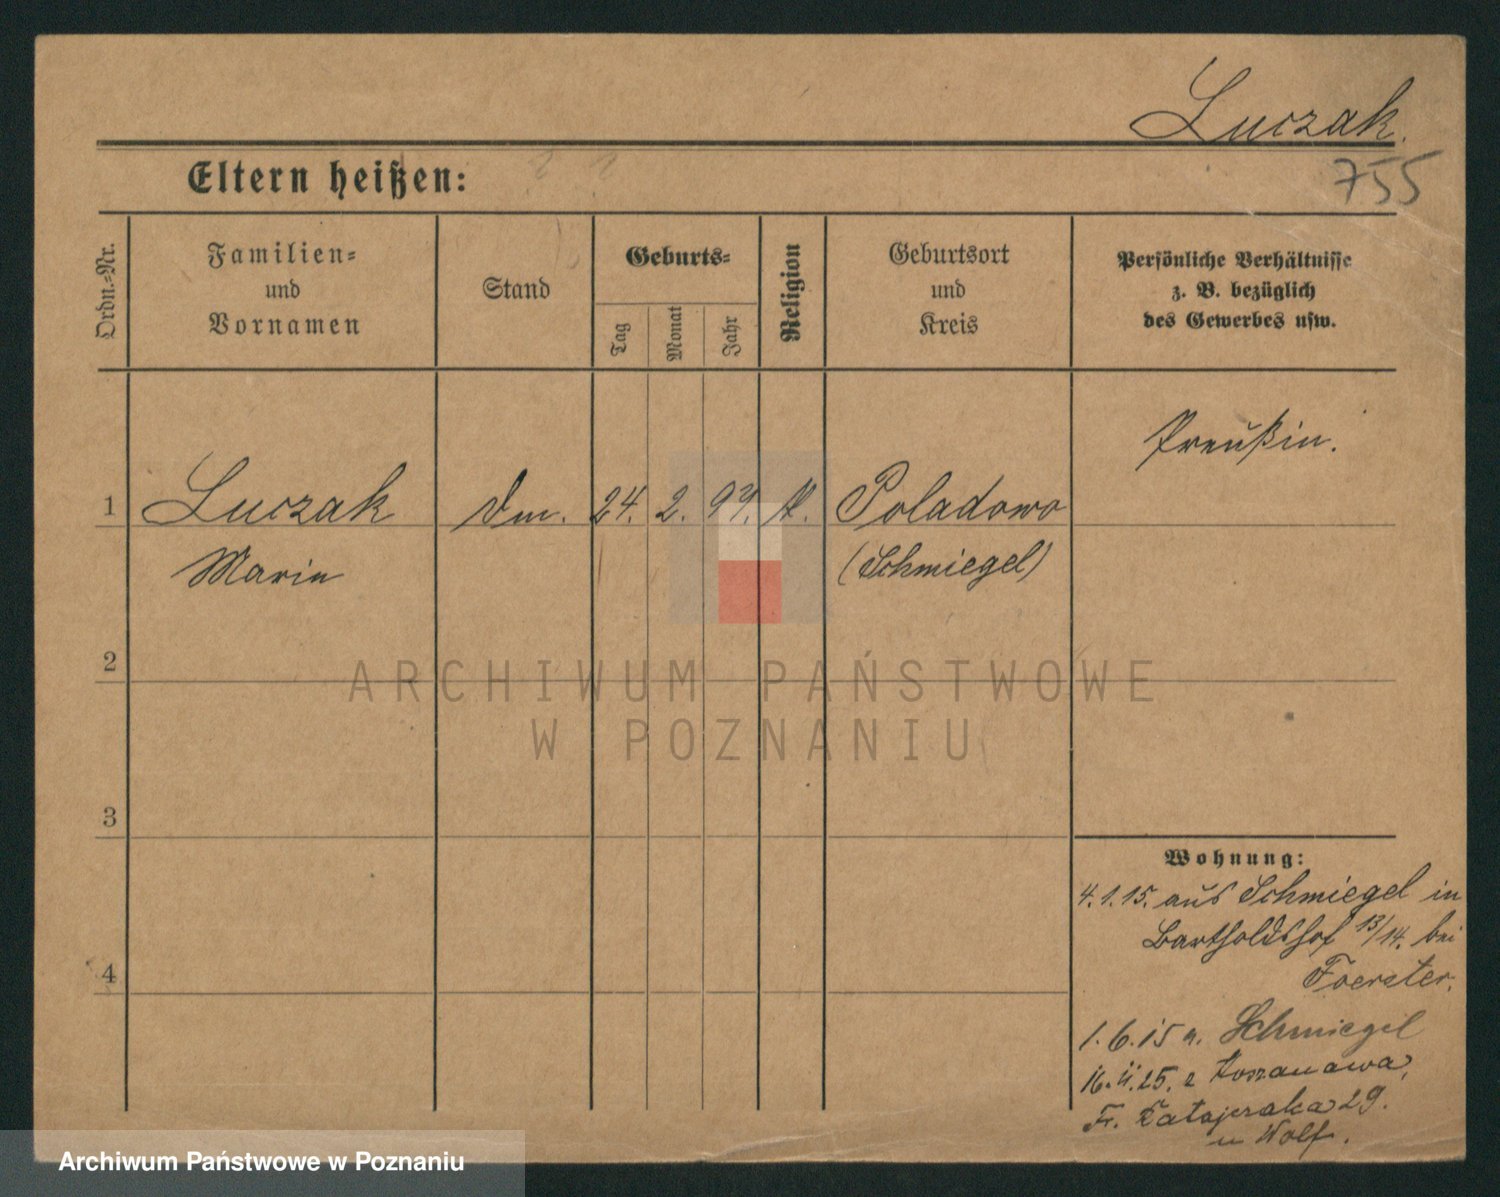 Luczak.
755
Eltern heißen:
Ordn.-Nr.
Familien-
und
Vornamen
Stand
Geburts-
Tag
Monat
Jahr
Religion
Geburtsort
und
Kreis
Persönliche Verhältnisse
z. B. bezüglich
des Gewerbes usw.
Preußin.
1 Luczak 24. 2. 97. K. Poladowo
Maria (Schmiegel)
2
ARCHIWUM PAŃSTWOWE
W POZNANIU
3
4
Wohnung:
4.1.15. aus Schmiegel in
Bartholdshof 13/14. bei
Foerster.
1.6.15 n. Schmiegel
25. z
29.
u Wolf.
Archiwum Państwowe w Poznaniu